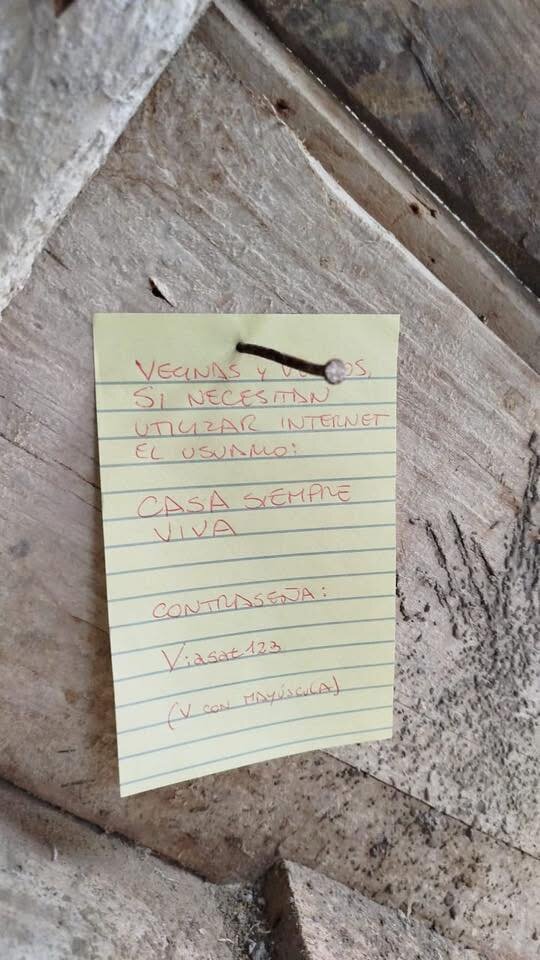 VECINAS Y
SI NECESITAN
UTILIZAR INTERNET
EL USUARIO:
CASA SIEMPRE
VIVA
CONTRASEÑA:
Viasat123
(V CON MAYÚSCULA)